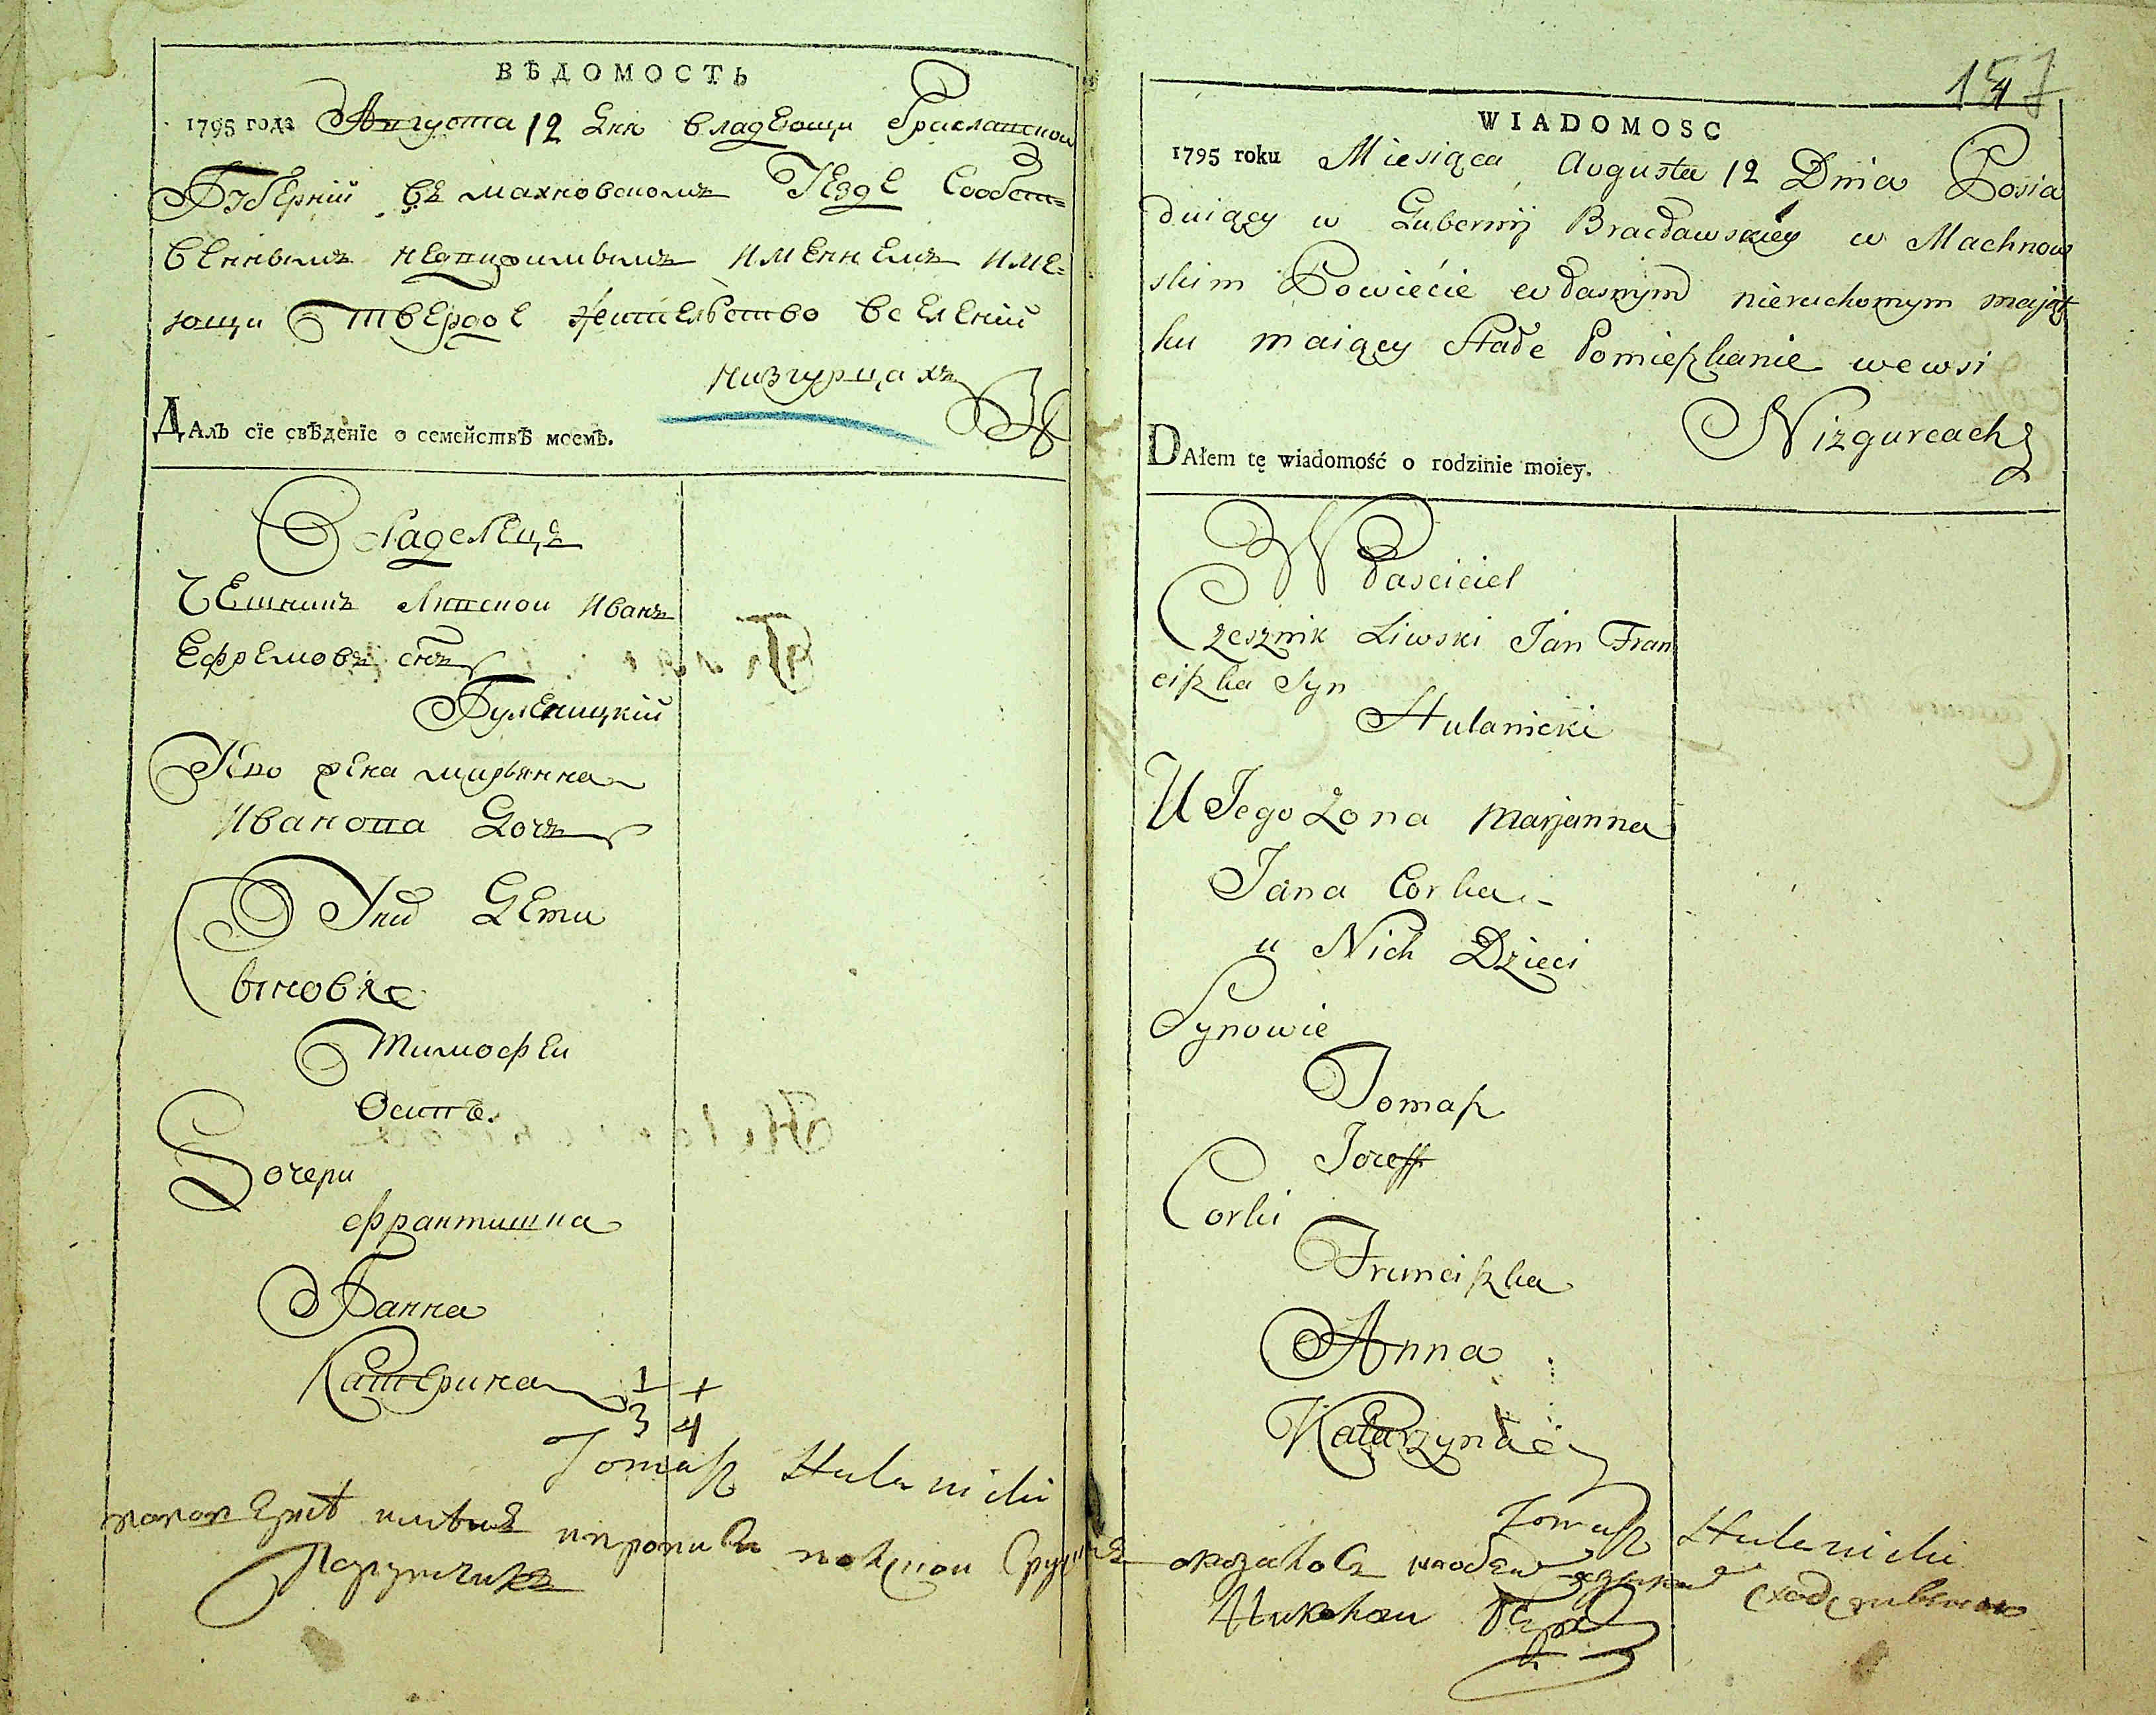 ВѢДОМОСТЬ
1795 года Августа 12 дня владеющи Браславской
Губерній въ махновскомъ Уезде Собст=
веннымъ недвижимымъ имениемъ име=
ющи твердое жительство вселеній
низгурцахъ
ДАлъ сїе свѣденїе о семействѣ моемъ.
Владелецъ
Чешникъ Ливской Иванъ
Ефремовъ снъ
Гуленицкій
У Ево жена марьянна
Иванова Дочъ
У них Дети
Сыновя
Тимофеи
Осипъ.
Дочери
франтишка
Ганна
Катерина
1 +
3 4
Tomasz Hulanicki
Поручикъ
157
4
WIADOMOSC
1795 roku Miesiąca Augusta 12 Dnia Posia
duiący w Gubernij Bracławskiey w Machnow
skim Powiećie własnym nieruchomym mająt
ku maiący Stałe Pomieszkanie wewsi
Nizgurcach
DAłem tę wiadomość o rodzinie moiey.
Własciciel
Czesznik Liwski Jan Fran
ciszka Syn
Hulanicki
U Jego Zona Marjanna
Jana Corka
u Nich Dzieci
Synowie
Tomasz
Jozeff
Corki
Franciszka
Anna
Katarzyna
Tomasz Hulanicki
Николаи